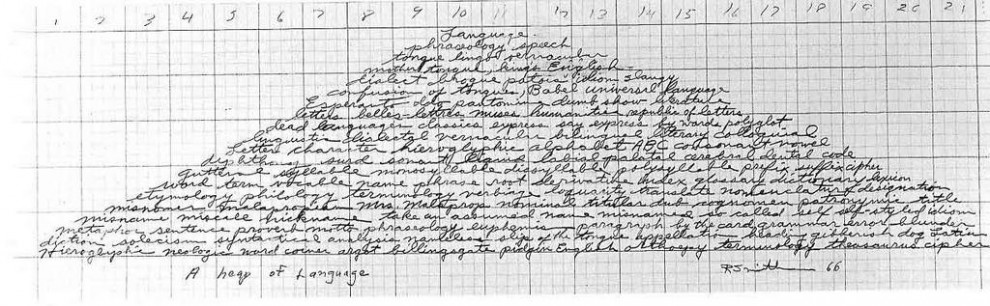 1 2 3 4 5 6 7 8 9 10 11 12 13 14 15 16 17 18 19 20 21
Language
phraseology speech
tongue lingo vernacular
mother tongue, kings English
dialect brogue patois idiom slangy
confusion of tongues, Babel universal language
Esperanto Ido pantomime dumb show literature
letters belles-lettres muses humanities republic of letters
dead languages classics express say express by words polyglot
linguistic dialectal vernacular bilingual literary colloquial
letter character hieroglyphic alphabet ABC consonant vowel
diphthong surd sonant liquid labial palatal cerebral dental code
guttural syllable monosyllable dissyllable polysyllable prefix suffix cipher
word term vocable name phrase root derivative index glossary dictionary lexicon
etymology philology terminology verbiag loquacity translate nomenclature designation
misnomer malapropism Mrs. Malaprop nominal titular dub cognomen patronymic title
misname miscall nickname take an assumed name misnamed so called self-styled idiom
metaphor sentence proverb motto phraseology euphemism paragraph by the card grammar error blunder
diction solecism syntactical analysis nameless slip of the tongue appellation heading gibberish dog Latin
Hieroglyphic neologic word coiner argot billingsgate pidgin English orthoepy terminology thesaurus cipher
A heap of Language
R Smithson 66